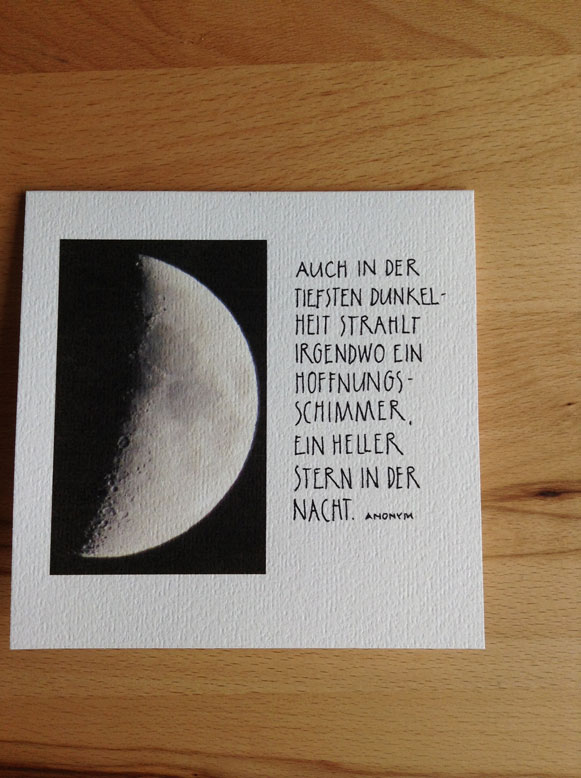 AUCH IN DER
TIEFSTEN DUNKEL-
HEIT STRAHLT
IRGENDWO EIN
HOFFNUNGS-
SCHIMMER,
EIN HELLER
STERN IN DER
NACHT. ANONYM